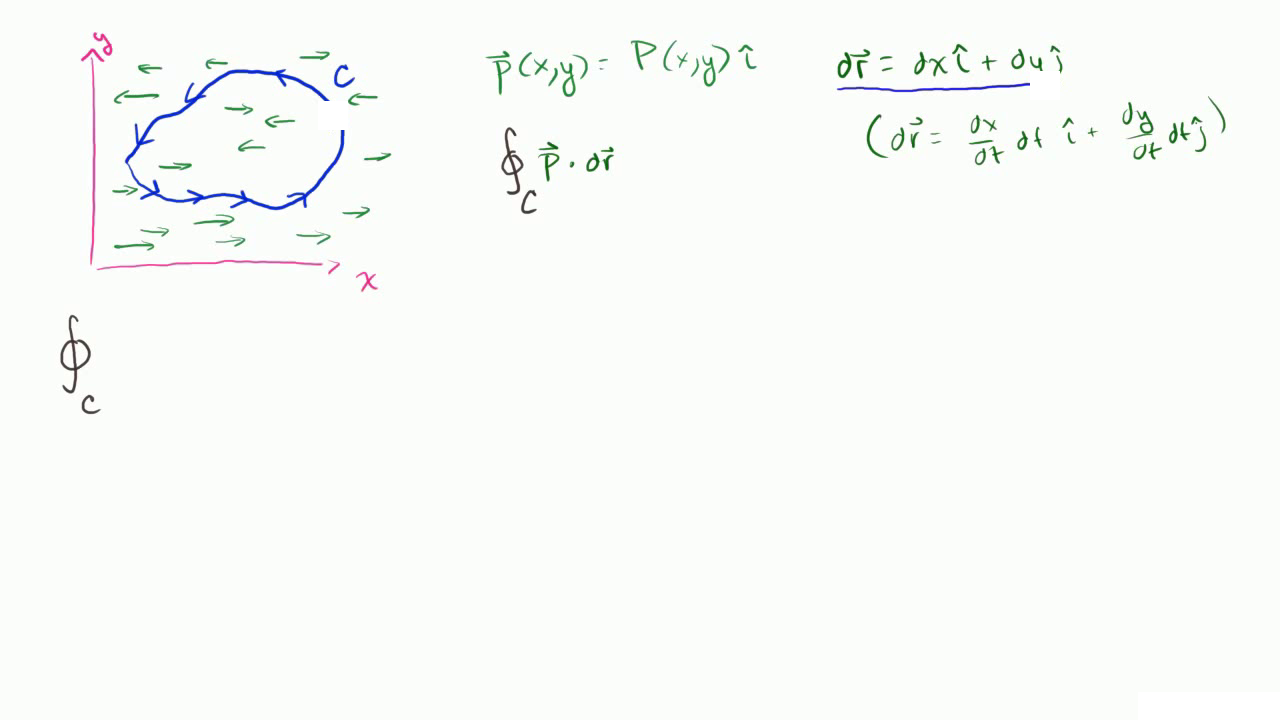 y
C
x
p⃗(x,y) = P(x,y) î
∮_C p⃗ · dr⃗
dr⃗ = dx î + dy ĵ
(dr⃗ = dx/dt dt î + dy/dt dt ĵ)
∮_C